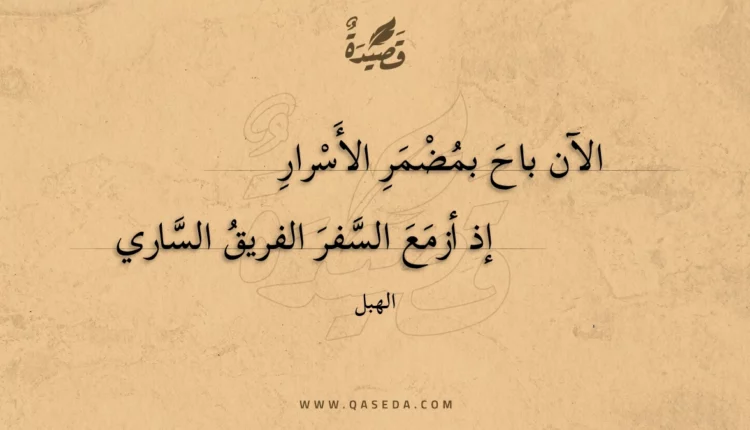 قَصِيْدَةٌ
الآن باحَ بمُضْمَرِ الأَسْرارِ
إذ أزمَعَ السَّفرَ الفريقُ السَّاري
الهبل
WWW.QASEDA.COM